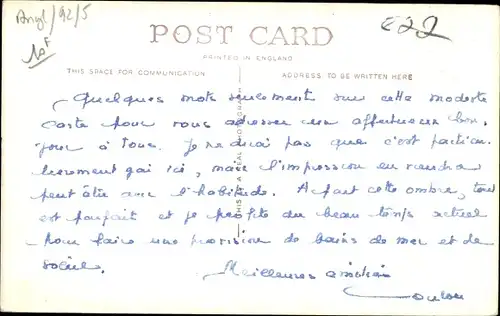 Angl/92/5
E22
10F
POST CARD
PRINTED IN ENGLAND
THIS SPACE FOR COMMUNICATION
ADDRESS TO BE WRITTEN HERE
THIS IS A REAL PHOTOGRAPH
Quelques mots seulement sur cette modeste
carte pour vous adresser un affectueux bon-
jour à tous. Je ne dirai pas que c'est particu-
lièrement gai ici, mais l'impression en viendra
peut être avec l'habitude. A part cette ombre, tout
est parfait et je profite du beau temps actuel
pour faire une provision de bains de mer et de
soleil.
Meilleures amitiés